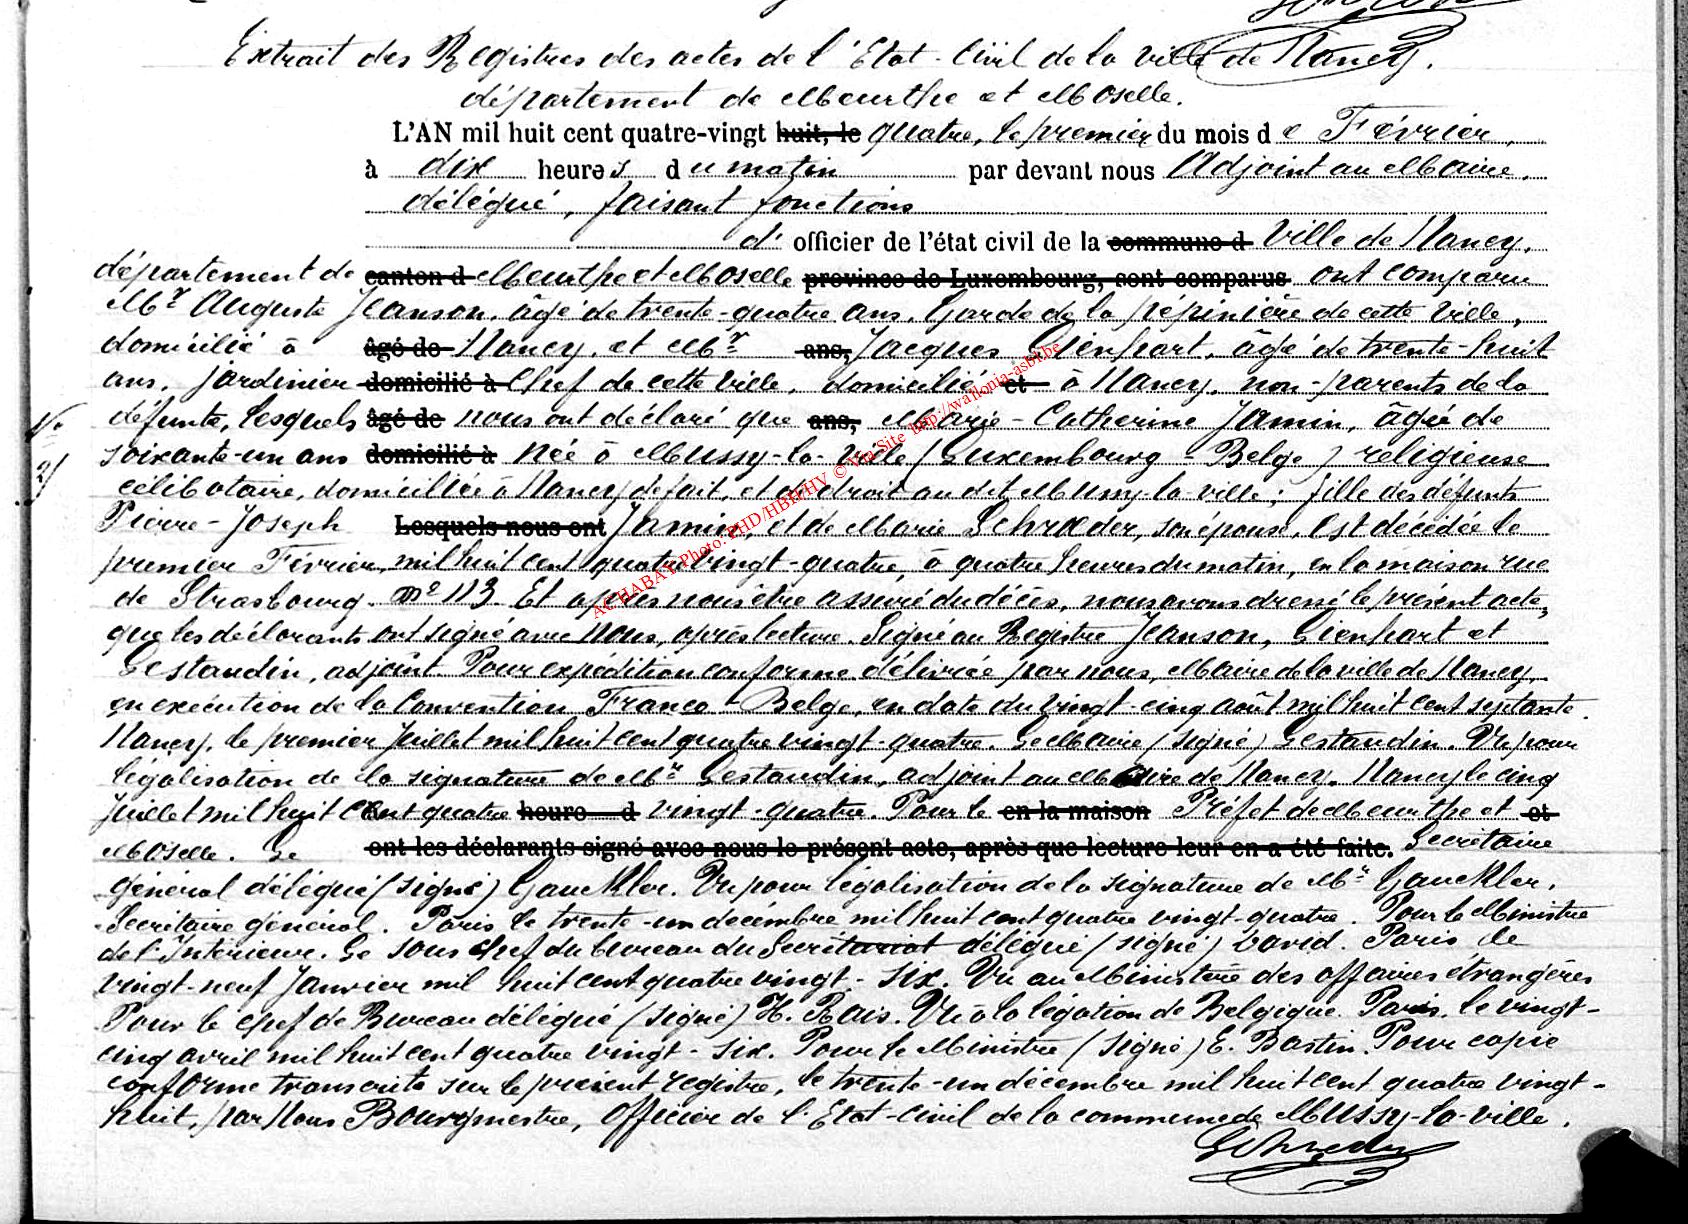 Extrait des Registres des actes de l'Etat-Civil de la ville de Nancy.
département de Meurthe et Moselle.
L'AN mil huit cent quatre-vingt huit, le quatre, le premier du mois de Février,
à dix heures du matin par devant nous Adjoint au Maire,
délégué, faisant fonctions
d' officier de l'état civil de la commune d Ville de Nancy,
département de canton d Meurthe et Moselle province de Luxembourg, sont comparus ont comparu
Mr Auguste Jeanson, âgé de trente-quatre ans, Garde de la pépinière de cette ville,
domicilié à âgé de Nancy, et Mr ans, Jacques Lienhart, âgé de trente-huit
ans, Jardinier domicilié à Chef de cette ville, domicilié et à Nancy, non-parents de la
défunte, lesquels âgé de nous ont déclaré que ans, Marie-Catherine Jamin, âgée de
soixante-un ans domicilié à née à Mussy-la-Ville (Luxembourg Belge) religieuse
célibataire, domiciliée à Nancy de fait, et de droit au dit Mussy-la-ville; fille des défunts
Pierre-Joseph Lesquels nous ont Jamin, et de Marie Schrœder, son épouse, est décédée le
premier Février, mil huit cent quatre vingt-quatre, à quatre heures du matin, en la maison rue
de Strasbourg, no 113. Et après nous être assuré du décès, nous avons dressé le présent acte,
que les déclarants ont signé avec Nous, après lecture. Signé au Registre Jeanson, Lienhart et
Lestaudin, adjoint. Pour expédition conforme délivrée par nous, Maire de la ville de Nancy,
en exécution de la Convention Franco-Belge, en date du vingt-cinq août mil huit cent septante.
Nancy, le premier Juillet mil huit cent quatre vingt-quatre. Le Maire (signé) Lestaudin. Vu pour
légalisation de la signature de Mr Lestaudin, adjoint au Maire de Nancy. Nancy le cinq
Juillet mil huit cent quatre heure d vingt-quatre. Pour le en la maison Préfet de Meurthe et et
Moselle. Le ont les déclarants signé avec nous le présent acte, après que lecture leur en a été faite. Secrétaire
général délégué (signé) Gauckler. Vu pour légalisation de la signature de Mr Gauckler,
Secrétaire général. Paris, le trente-un décembre mil huit cent quatre vingt-quatre. Pour le Ministre
de l'Intérieur. Le sous chef du bureau du Secrétariat délégué (signé) David. Paris le
vingt-neuf Janvier mil huit cent quatre vingt-six. Vu au Ministère des affaires étrangères
Pour le chef de Bureau délégué (signé) H. Rais. Vu à la légation de Belgique. Paris, le vingt-
cinq avril mil huit cent quatre vingt-six. Pour le Ministre (signé) E. Bastin. Pour copie
conforme transcrite sur le présent registre, le trente-un décembre mil huit cent quatre vingt-
huit, par Nous Bourgmestre, Officier de l'Etat-Civil de la commune de Mussy-la-ville.
No
2
ACHABAT Photo: PHD/HBH/HV © Via Site http://wallonia-asbl.be